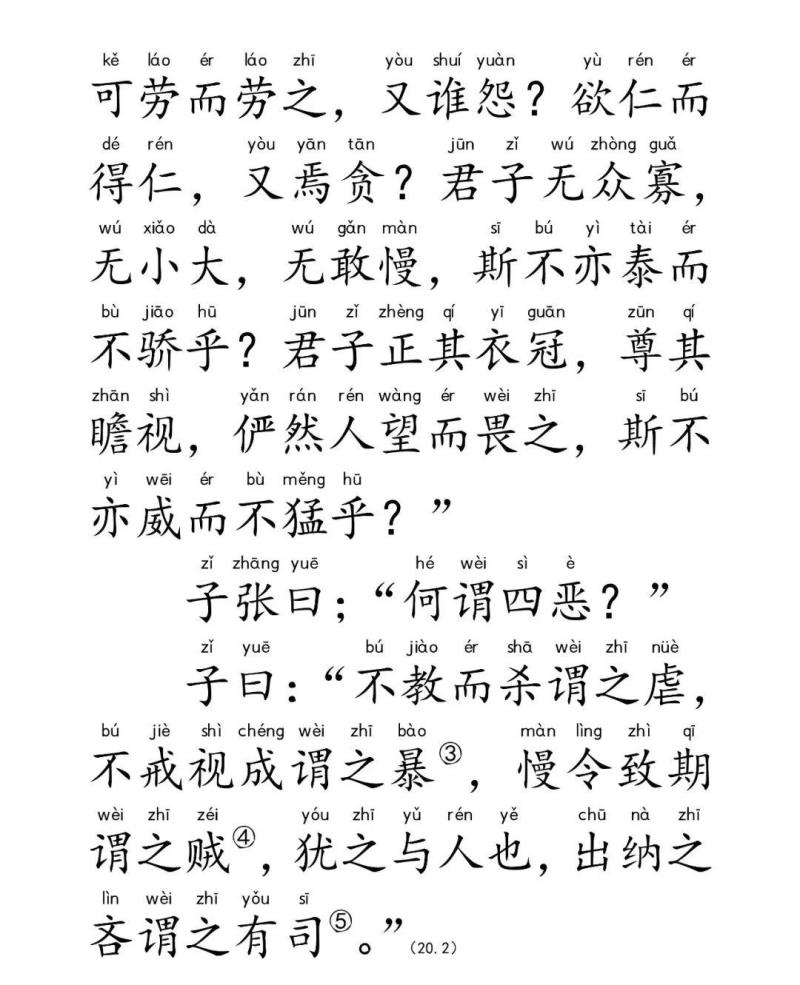 kě láo ér láo zhī yòu shuí yuàn yù rén ér
可劳而劳之，又谁怨？欲仁而
dé rén yòu yān tān jūn zǐ wú zhòng guǎ
得仁，又焉贪？君子无众寡，
wú xiǎo dà wú gǎn màn sī bú yì tài ér
无小大，无敢慢，斯不亦泰而
bù jiāo hū jūn zǐ zhèng qí yī guān zūn qí
不骄乎？君子正其衣冠，尊其
zhān shì yǎn rán rén wàng ér wèi zhī sī bú
瞻视，俨然人望而畏之，斯不
yì wēi ér bù měng hū
亦威而不猛乎？”
zǐ zhāng yuē hé wèi sì è
子张曰；“何谓四恶？”
zǐ yuē bú jiào ér shā wèi zhī nüè
子曰：“不教而杀谓之虐，
bú jiè shì chéng wèi zhī bào màn lìng zhì qī
不戒视成谓之暴③，慢令致期
wèi zhī zéi yóu zhī yǔ rén yě chū nà zhī
谓之贼④，犹之与人也，出纳之
lìn wèi zhī yǒu sī
吝谓之有司⑤。”（20.2）